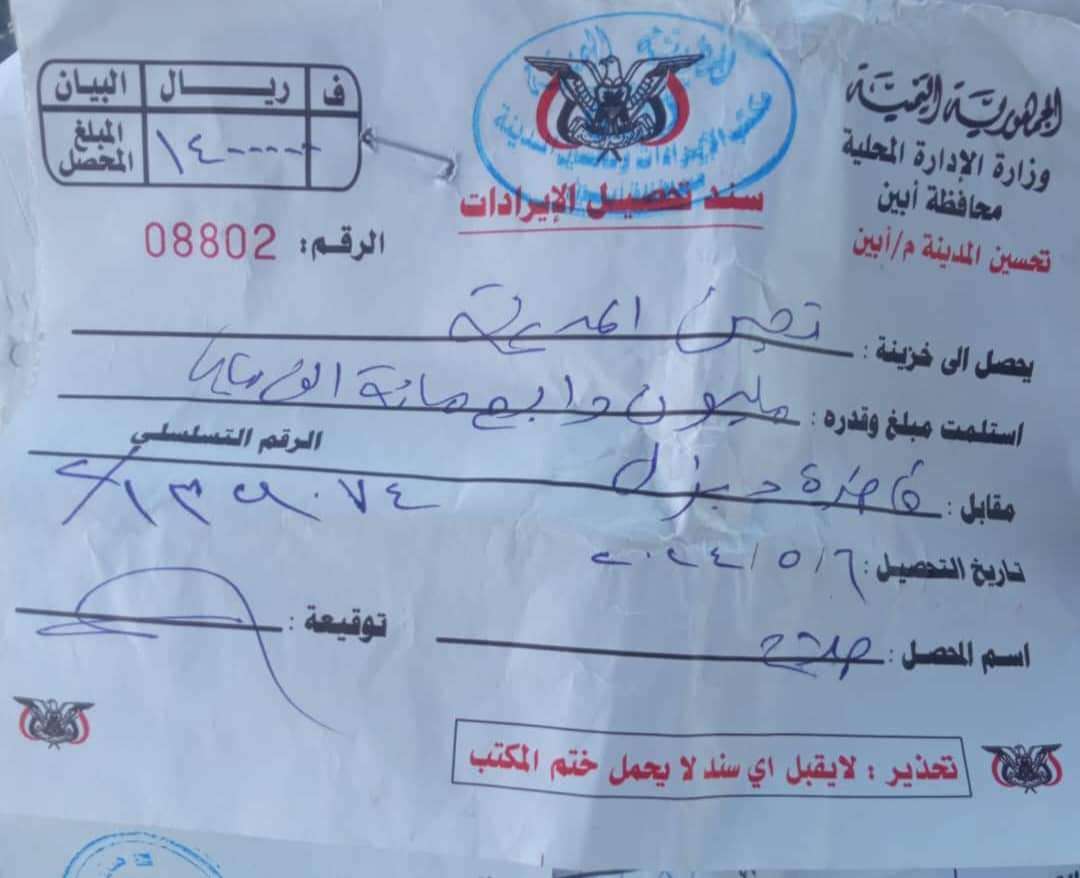 الجمهورية اليمنية
وزارة الإدارة المحلية
محافظة أبين
تحسين المدينة م/أبين
سند تحصيل الإيرادات
ف ريال البيان
١٤٠٠٠٠٠ المبلغ المحصل
الرقم: 08802
يحصل الى خزينة : تحسين المدينة
استلمت مبلغ وقدره : مليون واربع مائة الف ريال
الرقم التسلسلي
مقابل : قاطرة ديزل
تاريخ التحصيل : ٢٠٢٤/٥/٦
اسم المحصل : صلاح
توقيعة :
تحذير : لايقبل اي سند لا يحمل ختم المكتب